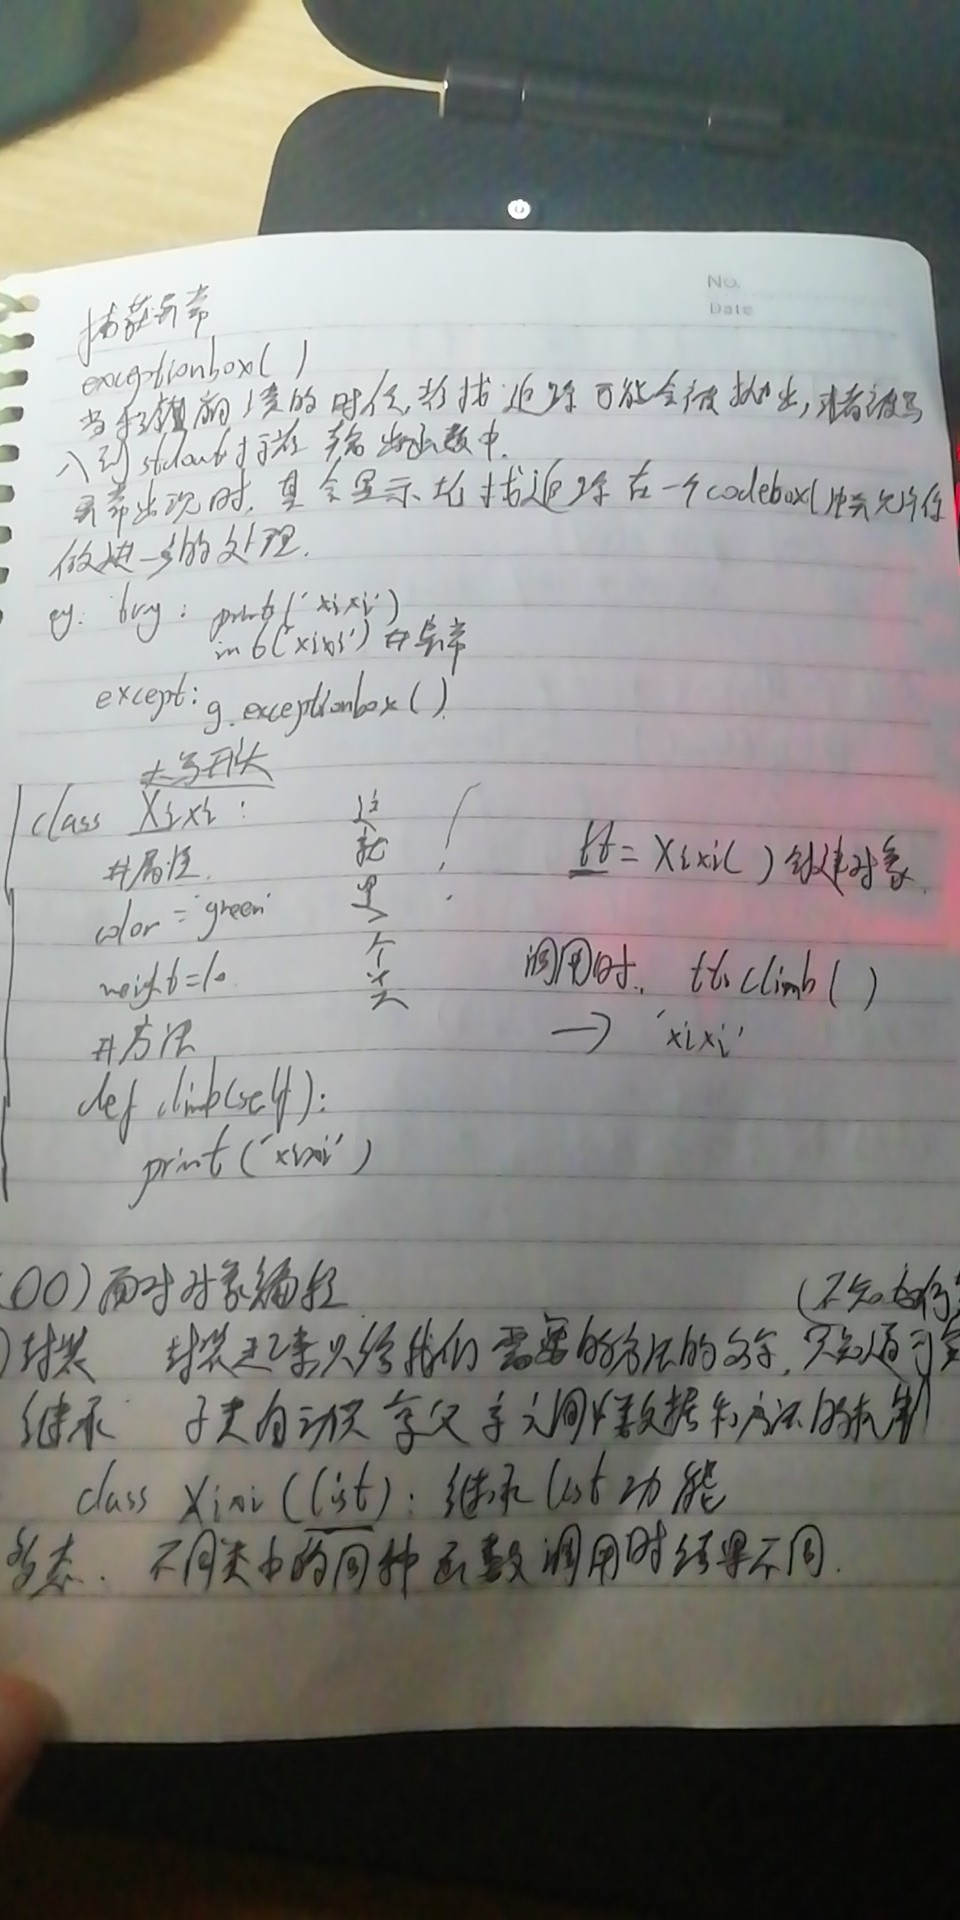 No.
Date
捕获异常
exceptionbox( )
当程序出错的时候,堆栈追踪可能会被抛出,或者被写
入到stdout 标准输出函数中.
异常出现时,其会显示堆栈追踪在一个codebox( )中并允许你
做进一步的处理.
eg. try: print('xixi')
int('xixi') #异常
except: g.exceptionbox( )
大写开头
class Xixi: 这就是个类
#属性.
color='green'
weight=10
#方法
def climb(self):
print('xixi')
tt = Xixi( ) 创建对象.
调用时. tt.climb( )
→ 'xixi'
(OO)面对对象编程
封装 封装起来只给我们需要的方法的名字.
继承 子类自动共享父亲之间数据和方法的机制
class Xixi(list): 继承list功能
多态. 不同类中的同种函数调用时结果不同.